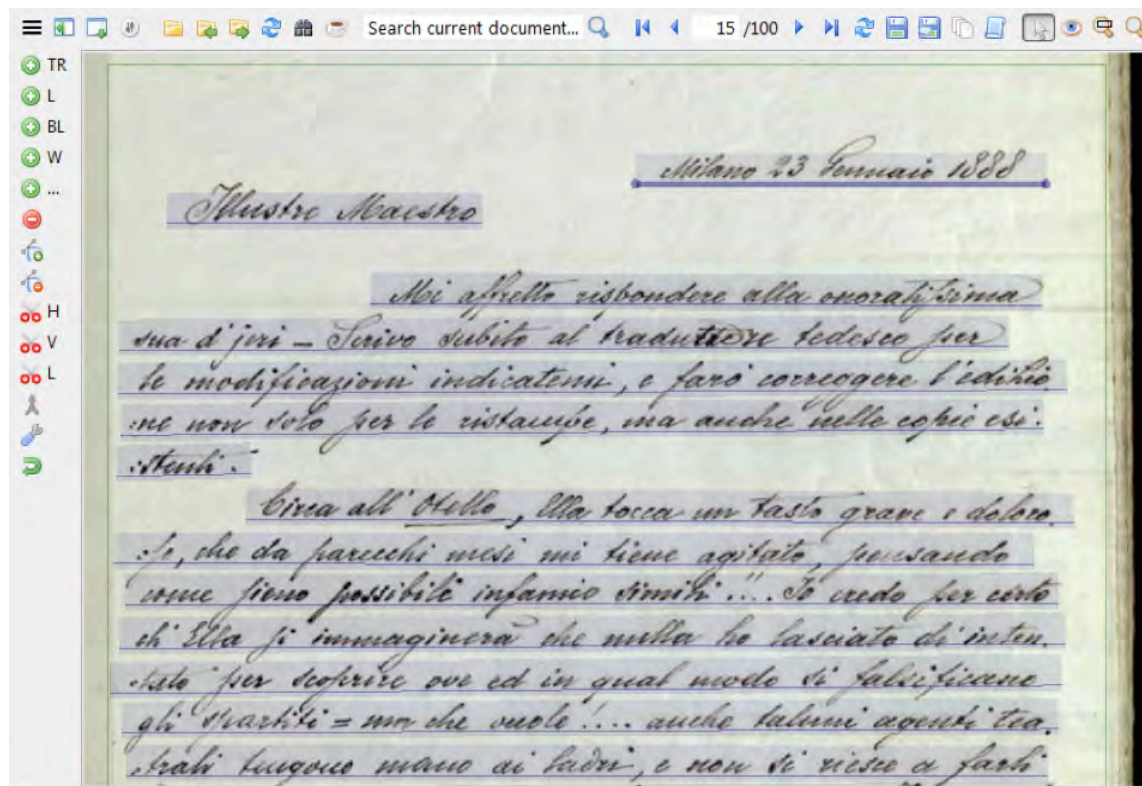 Search current document...
15 /100
TR
L
BL
W
...
H
V
L
Milano 23 Gennaio 1888
Illustre Maestro
Mi affretto rispondere alla onoratissima
sua d'jeri – Scrivo subito al traduttore tedesco per
le modificazioni indicatemi, e farò correggere l'edizio
:ne non solo per le ristampe, ma anche nelle copie esi:
:stenti.
Circa all'Otello, Ella tocca un tasto grave e doloro.
:so, che da parecchi mesi mi tiene agitato, pensando
come sieno possibili infamie simili!!... Io credo per certo
ch'Ella si immaginerà che nulla ho lasciato di inten.
:tato per scoprire ove ed in qual modo si falsificano
gli spartiti = ma che vuole!... anche taluni agenti tea.
:trali tengono mano ai ladri, e non si riesce a farli